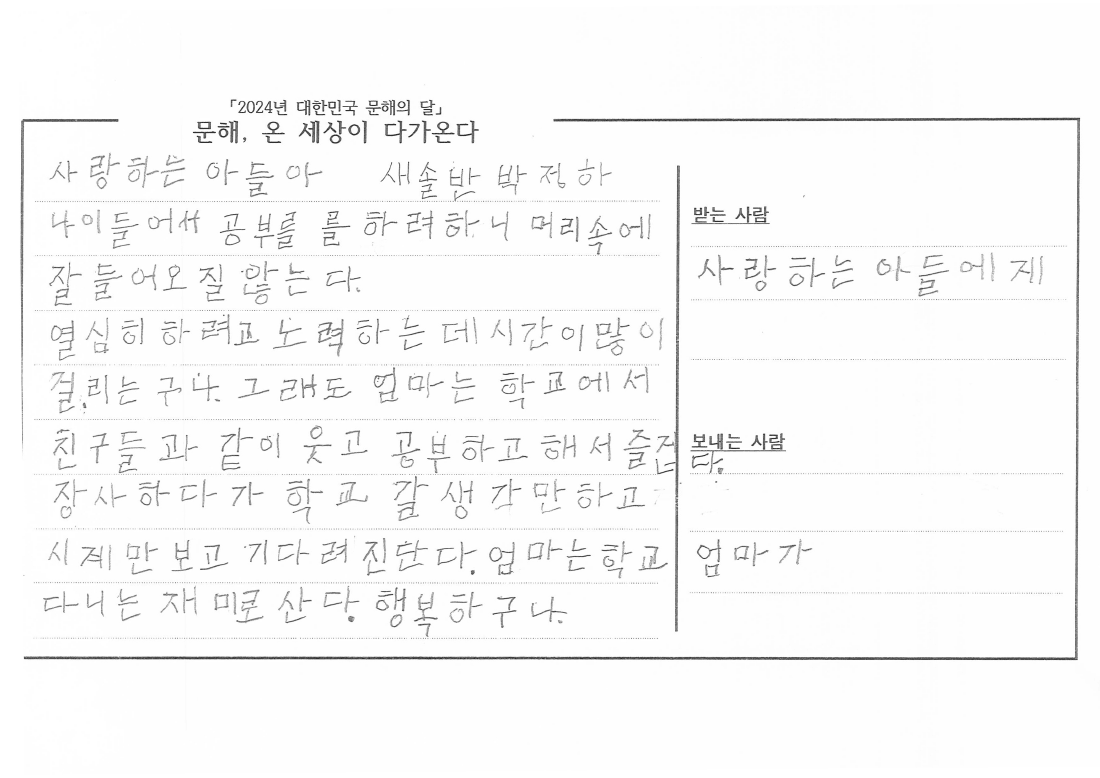 「2024년 대한민국 문해의 달」
문해, 온 세상이 다가온다
사랑하는 아들아 새솔반 박정하
나이들어서 공부를 를 하려하니 머리속에
잘 들어오질 않는다.
열심히 하려고 노력하는데 시간이많이
걸.리는구나. 그래도 엄마는 학교에서
친구들과 같이 웃고 공부하고 해서 즐겁다.
장사하다가 학교 갈 생각만하고
시계만보고 기다려진단다. 엄마는학교
다니는 재미로 산다. 행복하구나.
받는 사람
사랑하는 아들에게
보내는 사람
엄마가